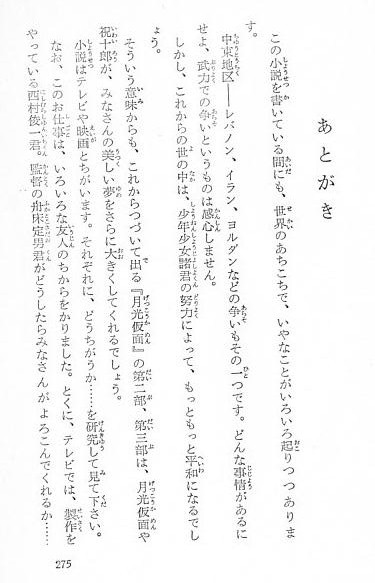 あとがき
この小説を書いている間にも、世界のあちこちで、いやなことがいろいろ起りつつありま
す。
中東地区――レバノン、イラン、ヨルダンなどの争いもその一つです。どんな事情があるに
せよ、武力での争いというものは感心しません。
しかし、これからの世の中は、少年少女諸君の努力によって、もっともっと平和になるでし
ょう。
そういう意味からも、これからつづいて出る『月光仮面』の第二部、第三部は、月光仮面や
祝十郎が、みなさんの美しい夢をさらに大きくしてくれるでしょう。
小説はテレビや映画とちがいます。それぞれに、どうちがうか……を研究して見て下さい。
なお、このお仕事は、いろいろな友人のちからをかりました。とくに、テレビでは、製作を
やっている西村俊一君。監督の舟床定男君がどうしたらみなさんがよろこんでくれるか……
275